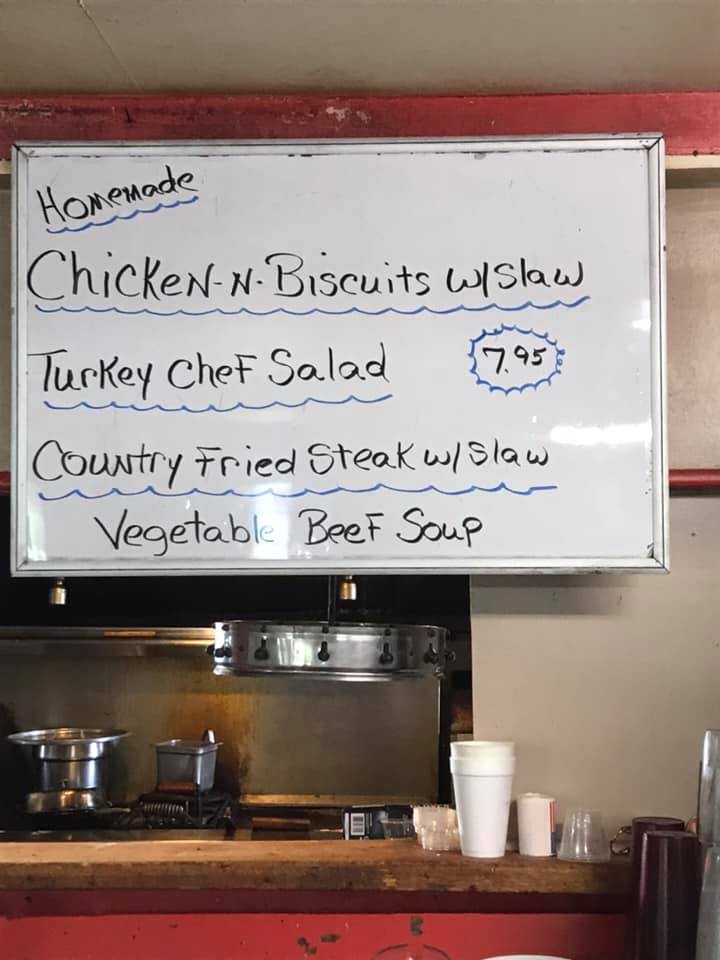 Homemade
Chicken-N-Biscuits w/Slaw
Turkey Chef Salad 7.95
Country Fried Steak w/Slaw
Vegetable Beef Soup